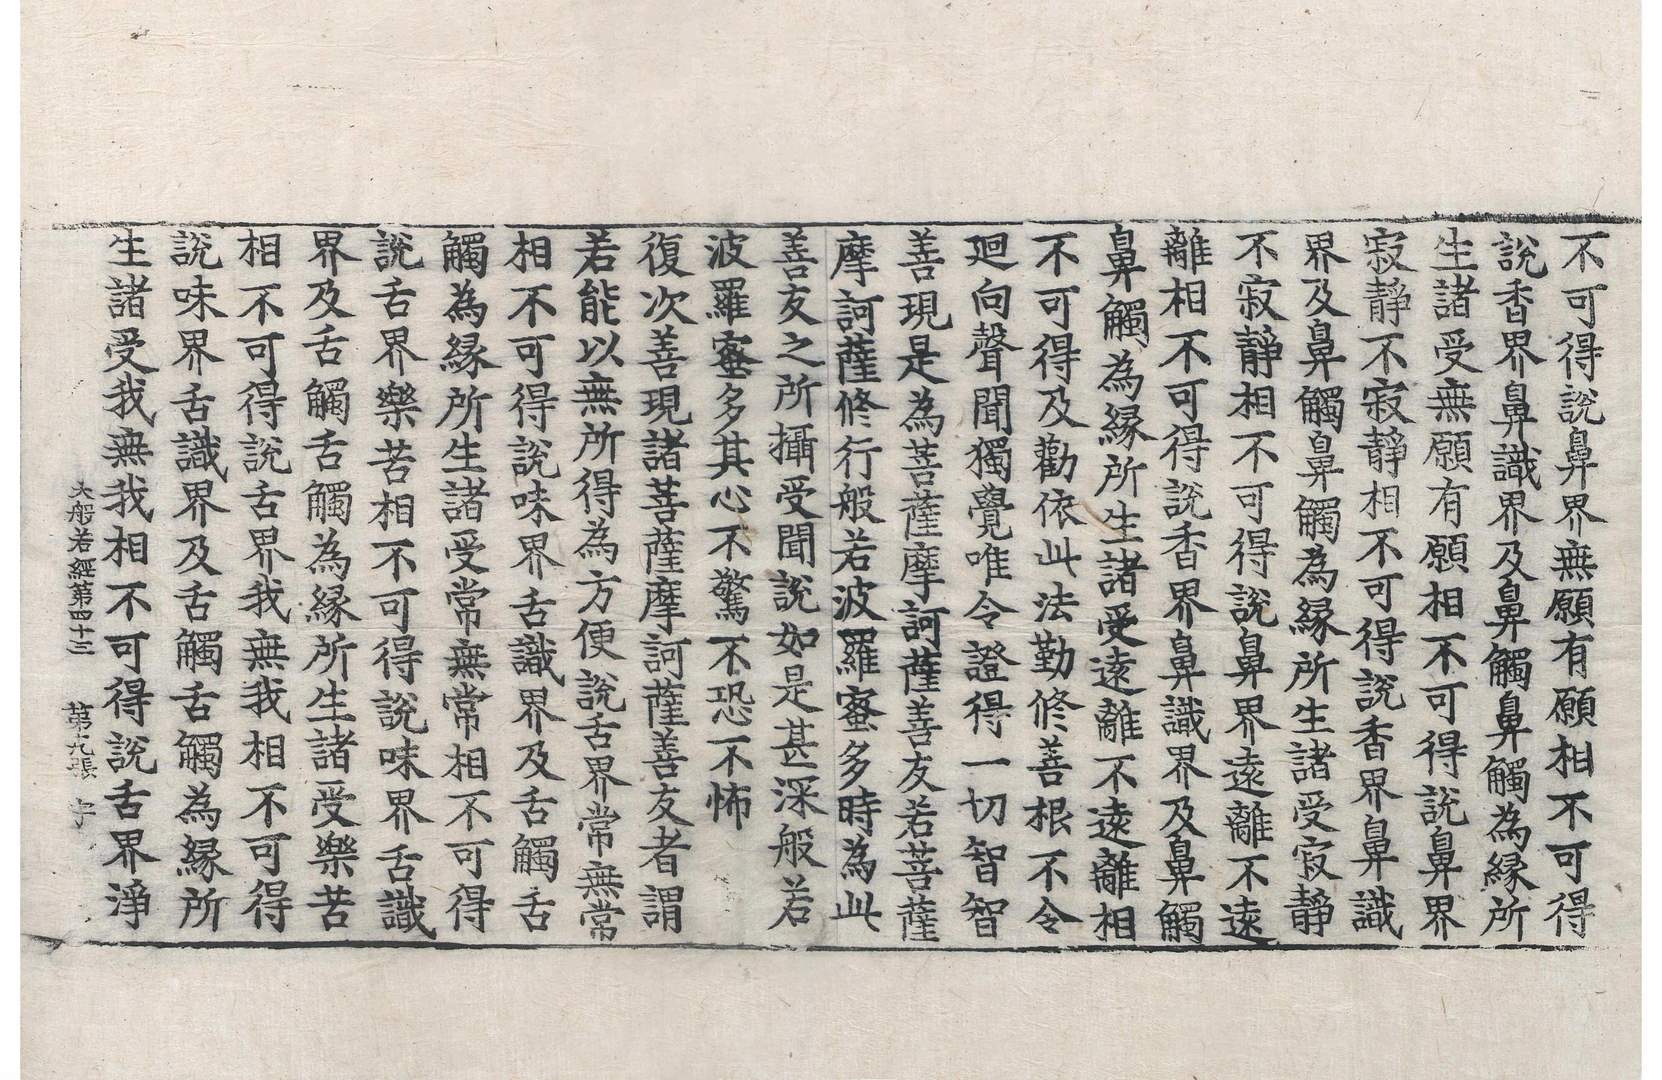 不可得說鼻界無願有願相不可得
說香界鼻識界及鼻觸鼻觸為緣所
生諸受無願有願相不可得說鼻界
寂靜不寂靜相不可得說香界鼻識
界及鼻觸鼻觸為緣所生諸受寂靜
不寂靜相不可得說鼻界遠離不遠
離相不可得說香界鼻識界及鼻觸
鼻觸為緣所生諸受遠離不遠離相
不可得及勸依此法勤修善根不令
迴向聲聞獨覺唯令證得一切智智
善現是為菩薩摩訶薩善友若菩薩
摩訶薩修行般若波羅蜜多時為此
善友之所攝受聞說如是甚深般若
波羅蜜多其心不驚不恐不怖
復次善現諸菩薩摩訶薩善友者謂
若能以無所得為方便說舌界常無常
相不可得說味界舌識界及舌觸舌
觸為緣所生諸受常無常相不可得
說舌界樂苦相不可得說味界舌識
界及舌觸舌觸為緣所生諸受樂苦
相不可得說舌界我無我相不可得
說味界舌識界及舌觸舌觸為緣所
生諸受我無我相不可得說舌界淨
大般若經第四十三 第九張 宇